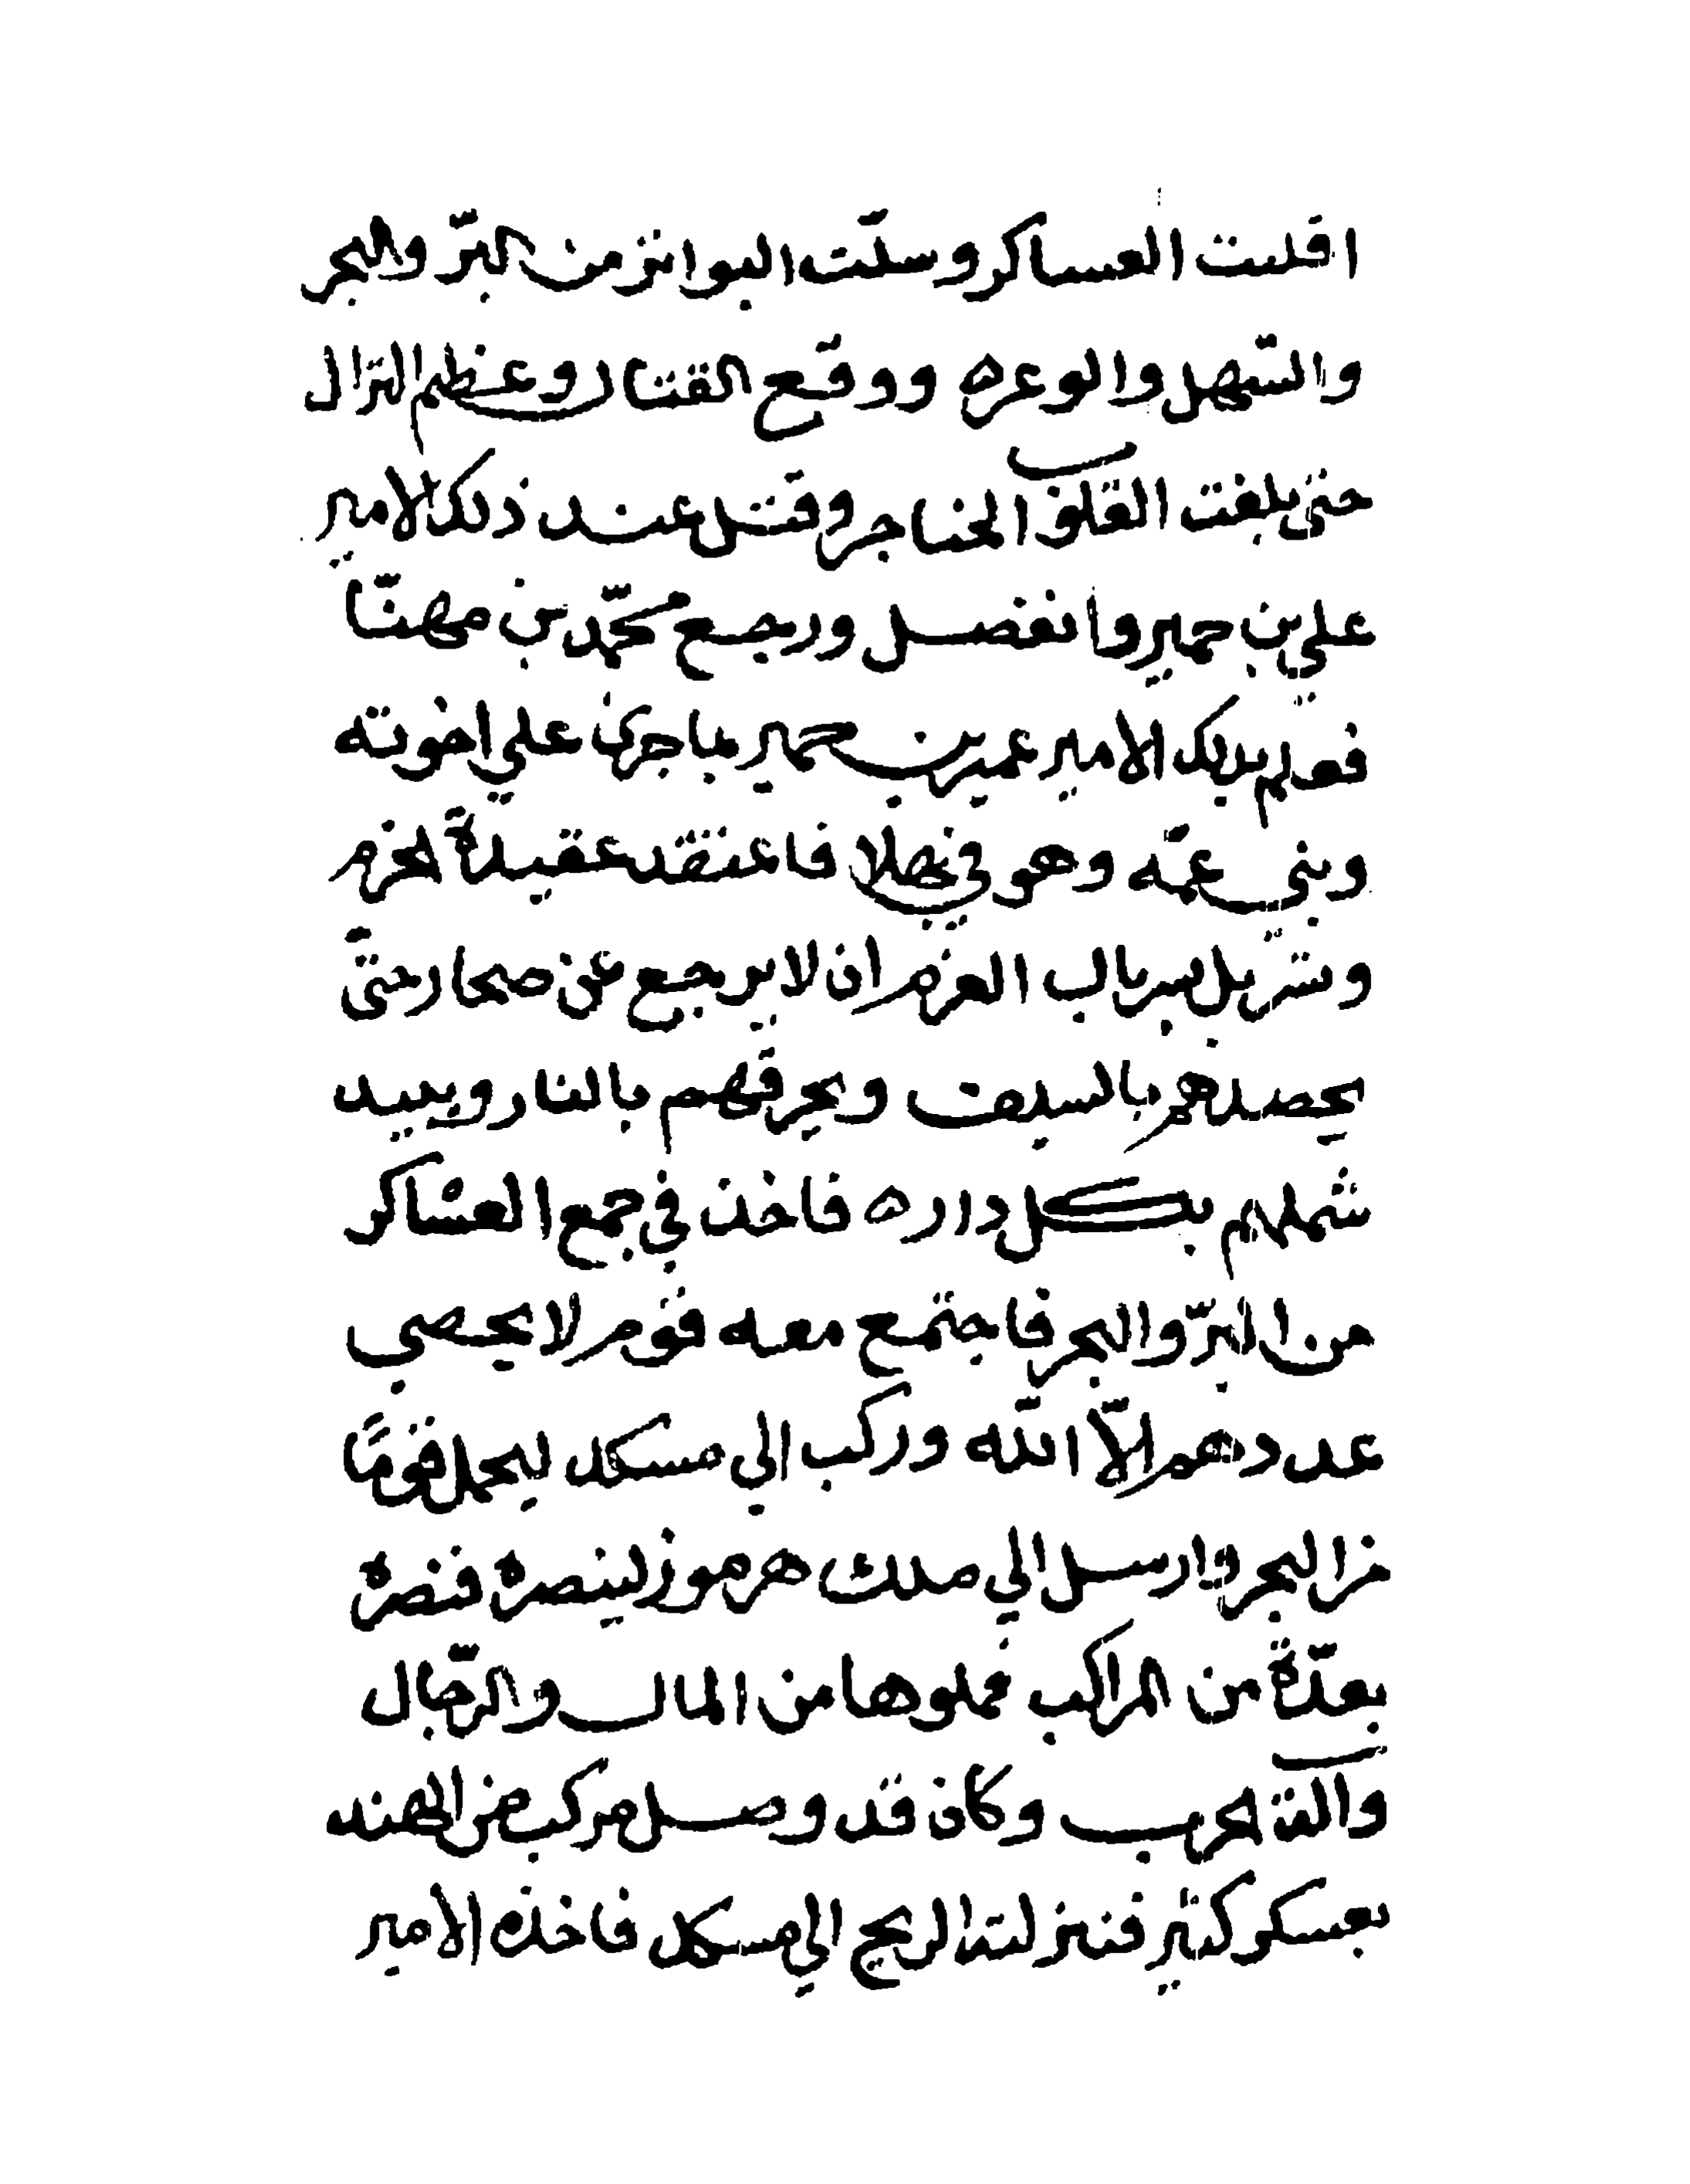 اقلبت العساكر وسلّت البواتر من البرّ والبحر
والسّهل والوعره ووقع القتال وعظم النزال
حتى بلغت القلوب الحناجر وقتل عند ذلك الامير
علي بن حمير وانفصل ورجع محمّد بن مهنّا
فعلم بذلك الامير عمير بن حمير بما جرى علي اخوته
وبني عمّه وهو في بهلا فاعتقد عقيدة الحزم
وتسربل سربال العزم ان لا يرجع عن صحار حتّى
يحصدهم بالسيف ويحرقهم بالنار ويبيد
شملهم بكل داره فاخذ في جمع العساكر
من البرّ والبحر فاجتمع معه قوم لا يحصي
عددهم الّا اللّه وركب الي مسكد ليحمل قومًا
من البحر وارسل الي ملك هرموز لينصره فنصره
بعدّة من المراكب مملوها من المال والرّجال
وآلة الحرب وكان قد وصل مركب من الهند
بعسكر كثير فنزلته الريح الي مسكد فاخذه الامير